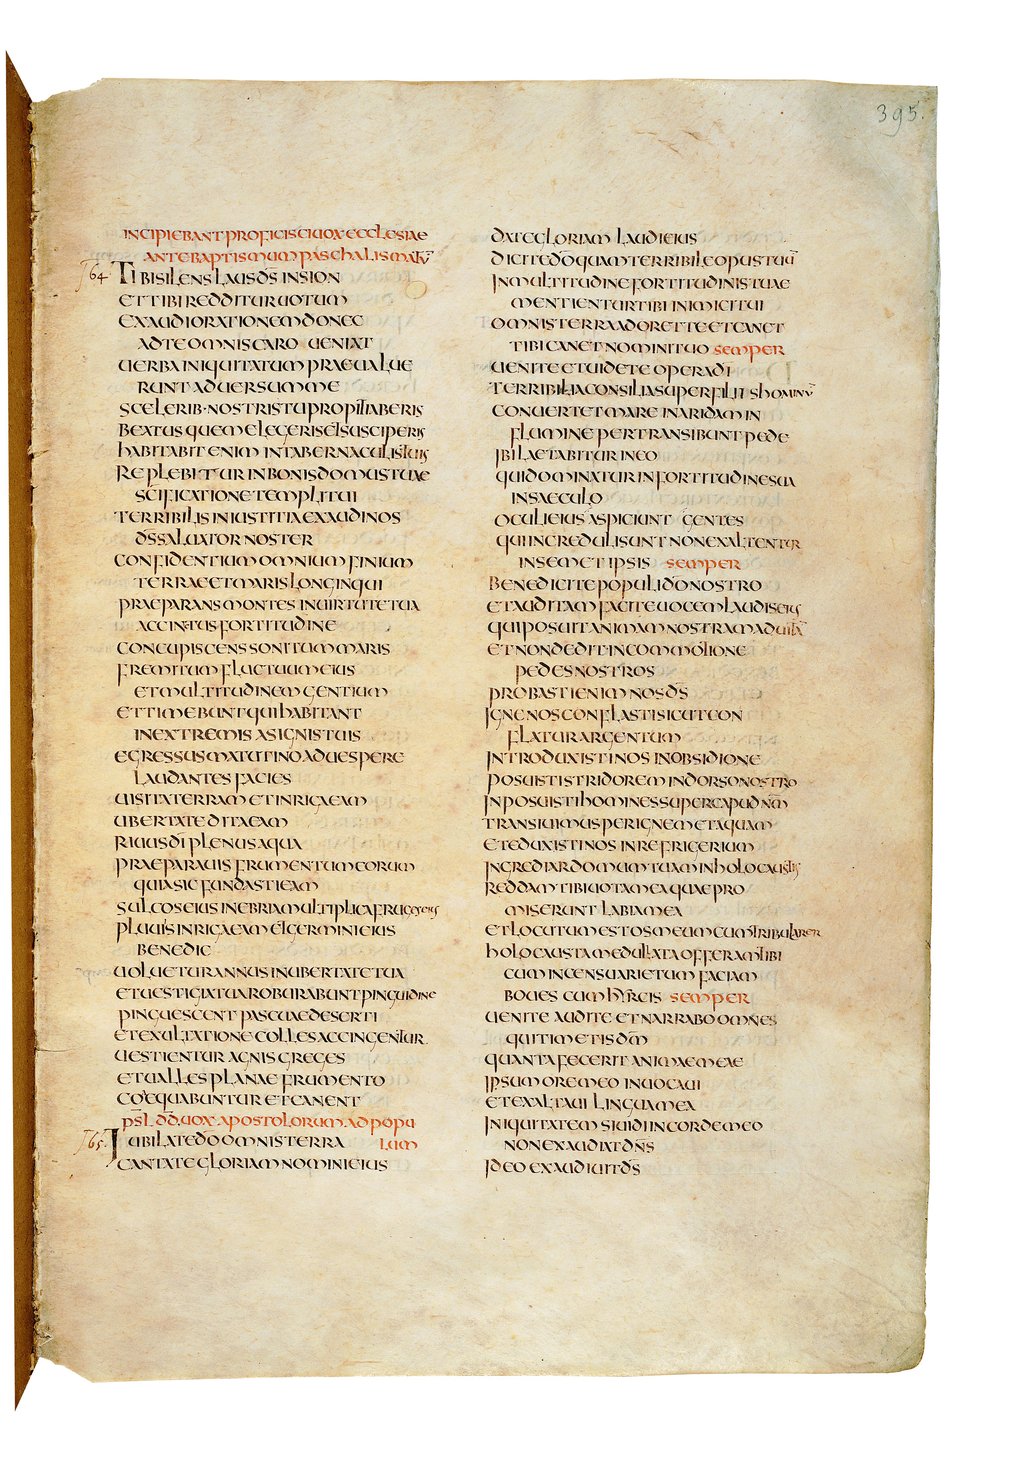 395.
INCIPIEBANT PROFICISCI UOX ECCLESIAE
ANTE BAPTISMUM PASCHALISMATŪ
64 TIBI SILENS LAUS D̄S IN SION
ET TIBI REDDITUR UOTUM
EXAUDI ORATIONEM DONEC
AD TE OMNIS CARO UENIAT
UERBA INIQUITATUM PRAEUALUE
RUNT ADUERSUM ME
SCELERIB· NOSTRIS TU PROPITIABERIS
BEATUS QUEM ELEGERIS ET SUSCIPERIS
HABITABIT ENIM IN TABERNACULIS TUIS
REPLEBITUR IN BONIS DOMUS TUAE
SC̄IFICATIONE TEMPLI TUI
TERRIBILIS IN IUSTITIA EXAUDI NOS
D̄S SALUATOR NOSTER
CONFIDENTIUM OMNIUM FINIUM
TERRAE ET MARIS LONGINQUI
PRAEPARANS MONTES IN UIRTUTE TUA
ACCINTUS FORTITUDINE
CONCUPISCENS SONITUM MARIS
FREMITUM FLUCTUUM EIUS
ET MULTITUDINEM GENTIUM
ET TIMEBUNT QUI HABITANT
IN EXTREMIS A SIGNIS TUIS
EGRESSUS MATUTINO AD UESPERE
LAUDANTES FACIES
UISITA TERRAM ET INRIGA EAM
UBERTATE DITA EAM
RIUUS D̄I PLENUS AQUA
PRAEPARAUIS FRUMENTUM EORUM
QUIA SIC FUNDASTI EAM
SULCOS EIUS INEBRIA MULTIPLICA FRUGES EIUS
PLUUIIS INRIGA EAM ET GERMINI EIUS
BENEDIC
UOLUETUR ANNUS IN UBERTATE TUA
ET UESTIGIA TUA RORABUNT PINGUIDINE
PINGUESCENT PASCUAE DESERTI
ET EXULTATIONE COLLES ACCINGENTUR
UESTIENTUR AGNIS GREGES
ET UALLES PLANAE FRUMENTO
COAEQUABUNTUR ET CANENT
PS̄L D̄D̄. UOX APOSTOLORUM AD POPU
65. IUBILATE D̄O OMNIS TERRA LUM
CANTATE GLORIAM NOMINI EIUS
DATE GLORIAM LAUDI EIUS
DICITE D̄O QUAM TERRIBILE OPUS TUŪ
IN MULTITUDINE FORTITUDINIS TUAE
MENTIENTUR TIBI INIMICI TUI
OMNIS TERRA ADORET TE ET CANET
TIBI CANET NOMINI TUO SEMPER
UENITE ET UIDETE OPERA D̄I
TERRIBILIA CONSILIA SUPER FILIIS HOMINŪ
CONUERTET MARE IN ARIDAM IN
FLUMINE PERTRANSIBUNT PEDE
IBI LAETABITUR IN EO
QUI DOMINATUR IN FORTITUDINE SUA
IN SAECULO
OCULI EIUS ASPICIUNT GENTES
QUI INCREDULI SUNT NON EXALTENTUR
IN SEMET IPSIS SEMPER
BENEDICITE POPULI D̄O NOSTRO
ET AUDITAM FACITE UOCEM LAUDIS EIUS
QUI POSUIT ANIMAM NOSTRAM AD UITĀ
ET NON DEDIT IN COMMOTIONE
PEDES NOSTROS
PROBASTI ENIM NOS D̄S
IGNE NOS CONFLASTI SICUT CON
FLATUR ARGENTUM
INTRODUXISTI NOS IN OBSIDIONE
POSUISTI STRIDOREM IN DORSO NOSTRO
INPOSUISTI HOMINES SUPER CAPUD N̄M
TRANSIUIMUS PER IGNEM ET AQUAM
ET EDUXISTI NOS IN REFRIGERIUM
INGREDIAR DOMUM TUAM IN HOLOCAUSTIS
REDDAM TIBI UOTA MEA QUAE PRO
MISERUNT LABIA MEA
ET LOCUTUM EST OS MEUM CUM TRIBULARER
HOLOCAUSTA MEDULLATA OFFERAM TIBI
CUM INCENSU ARIETUM FACIAM
BOUES CUM HYRCIS SEMPER
UENITE AUDITE ET NARRABO OMNES
QUI TIMETIS D̄M
QUANTA FECERIT ANIMAE MEAE
IPSUM ORE MEO INUOCAUI
ET EXALTAUI LINGUA MEA
INIQUITATEM SI UIDI IN CORDE MEO
NON EXAUDIAT D̄N̄S
IDEO EXAUDIUIT D̄S